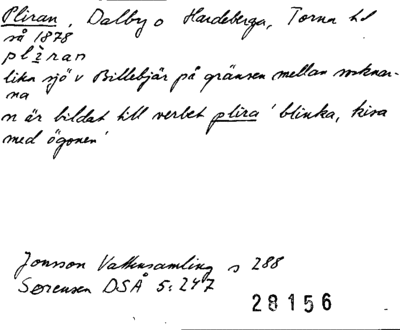 Pliran, Dalby o Hardeberga, Torna hd
så 1878
pliran
liten sjö v Billebjär på gränsen mellan socknar-
na
n är bildat till verbet plira 'blinka, kisa
med ögonen'
Jonsson Vattensamling s 288
Sørensen DSÅ 5:247
28156